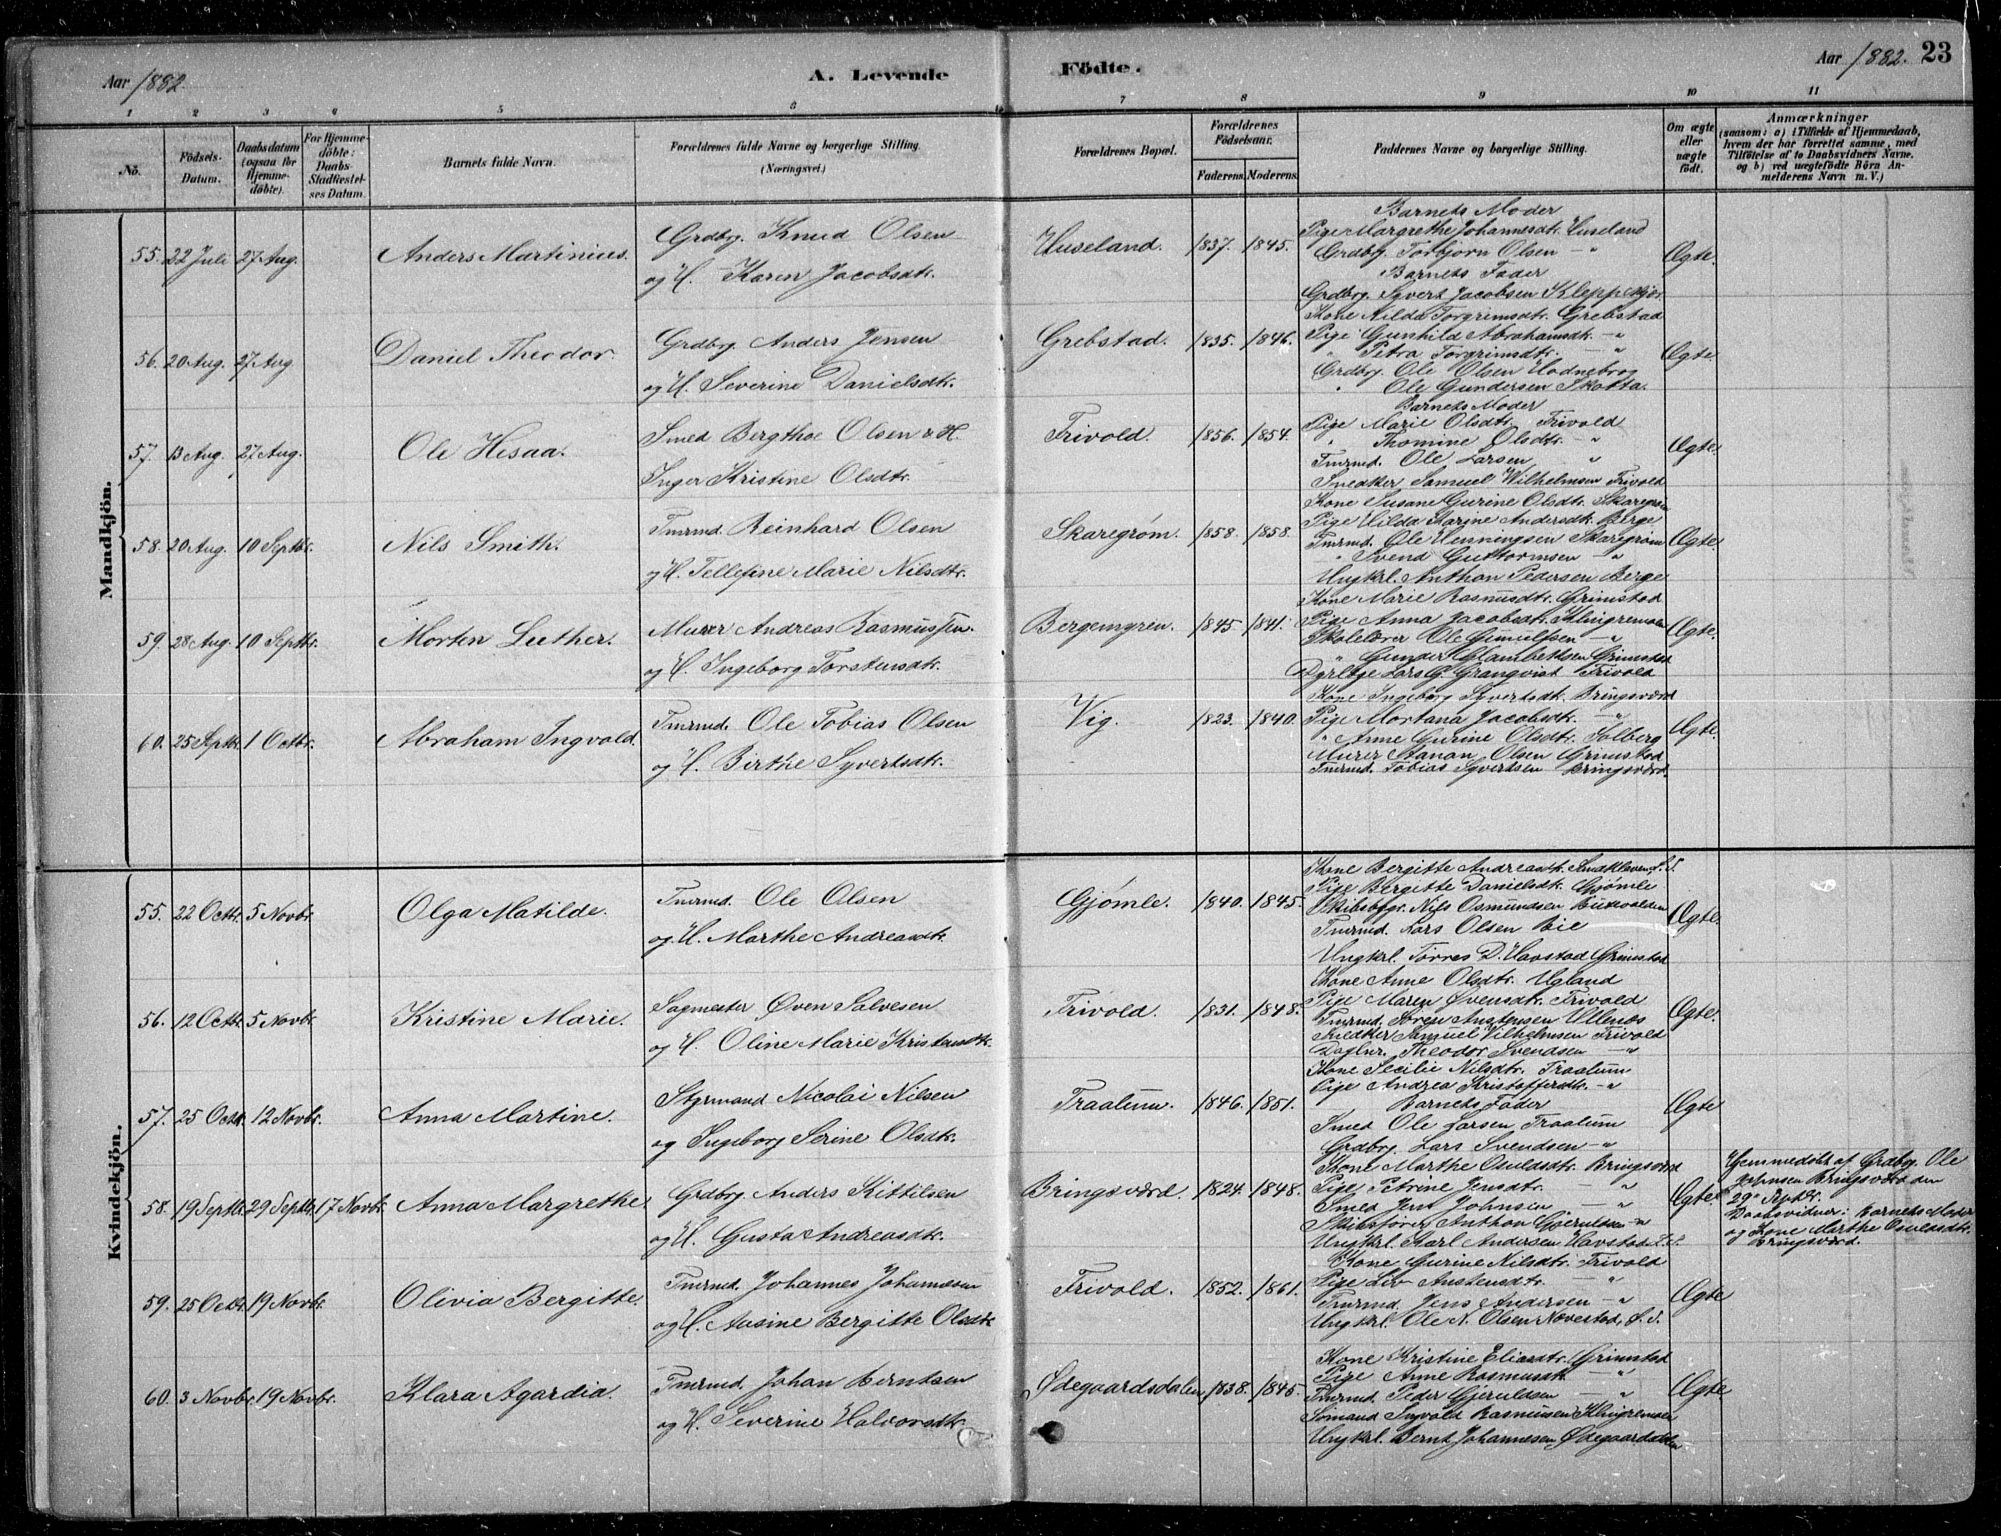 Aar 1882.
A. Levende
Födte.
Aar 1882. 23
1 2 3 4 5 6 7 8 9 10 11
No.
Födsels-Datum.
Daabsdatum (ogsaa for Hjemmedöbte).
For Hjemmedöbte: Daabs Stadfæstelses Datum.
Barnets fulde Navn.
Forældrenes fulde Navne og borgerlige Stilling.
(Næringsvei.)
Forældrenes Bopæl.
Forældrenes Födselsaar.
Faderens. Moderens.
Faddernes Navne og borgerlige Stilling.
Om ægte eller uægte födt.
Anmærkninger
(saasom: a) i Tilfælde af Hjemmedaab, hvem der har forrettet samme, med Tilföielse af to Daabsvidners Navne. og b) ved uægtefödte Börn Anmelderens Navn m. V.)
Mandkjön.
55. 22 Juli 27 Aug. Anders Martinius.
Grdbrg. Knud Olsen
og H. Karen Jacobsdtr.
Huseland. 1837. 1845.
Barnets Moder
Pige Margrethe Johannesdt. Huseland
Grdbrg. Torbjørn Olsen — "
Barnets Fader
Grdbrg. Syvert Jacobsen Kleppekjær
Ægte.
56. 20 Aug. 27 Aug Daniel Theodor.
Grdbrg. Anders Jensen
og H. Severine Danielsdtr.
Grebstad. 1835. 1846.
Kone Nilda Torgrimsdtr. Grebstad
Pige Gunhild Abrahamsdtr. — "
" Petra Torgrimsdtr. — "
Grdbrg. Ole Olsen Hodnebrog
" Ole Gundersen Skotta.
Ægte.
57. 13 Aug. 27 Aug. Ole Hisaa.
Smed Bergthoe Olsen & H.
Inger Kristine Olsdtr.
Frivold. 1856. 1854.
Barnets Moder
Pige Marie Olsdtr. Frivold
" Thomine Olsdtr. — "
Tmrmd. Ole Larsen "
Snedker Samuel Wilhelmsen Frivold
Ægte.
58. 20 Aug. 10 Septbr. Nils Smith.
Tmrmd. Reinhard Olsen
og H. Tellefine Marie Nilsdtr.
Skaregrøm. 1858. 1858.
Kone Susane Gurine Olsdtr. Skaregrøm
Pige Hilda Karine Andersdtr. Berge
Tmrmd. Ole Henningsen Skaregrøm
" Svend Guttormsen — "
Ungkrl. Anthon Pedersen Berge
Ægte.
59. 28 Aug. 10 Septbr. Morten Luther.
Murer Andreas Rasmussen.
og H. Ingeborg Torstensdtr.
Bergemyren. 1845. 1841.
Kone Marie Rasmusdtr. Grimstad
Pige Anna Jacobsdt.
Skolelærer Ole — "
" Gunder Grimstad
Lars G. Granqvist Frivold
Ægte.
60. 25 Septbr. 1 Octbr. Abraham Ingvald.
Tmrmd. Ole Tobias Olsen
og H. Birthe Syvertsdtr.
Vig. 1823. 1840.
Kone Ingeborg Syvertsdt. Bringsværd
Pige Mortana Jacobsdt. — "
" Anne Gurine Olsdtr. Solberg
Murer Olsen Grimstad
Tmrmd. Tobias Syvertsen Bringsværd.
Ægte.
Kvindekjön.
55. 22 Octbr. 5 Novbr. Olga Matilde.
Tmrmd. Ole Olsen
og H. Marthe Andreasdtr.
Gjømle. 1840. 1845.
Kone Bergitte Andreasdtr.
Pige Bergitte Danielsdt. Gjømle
Skibsbgr. Nils Osmundsen
Tmrmd. Lars Olsen Bie
Ungkrl. Torres D. Havstad Grimstad
Ægte.
56. 12 Octbr. 5 Novbr. Kristine Marie.
Sagmester Øven Salvesen
og H. Oline Marie Kristensdtr.
Frivold. 1831. 1848.
Kone Anne Olsdtr. Ugland
Pige Maren Øvensdtr. Frivold
Tmrmd. Søren Austensen
Snedker Samuel Vilhelmsen Frivold
Theodor Svendsen — "
Ægte.
57. 25 Octbr. 12 Novbr. Anna Martine.
Styrmand Nicolai Nilsen
og Ingeborg Serine Olsdtr.
Traalum. 1846. 1851.
Kone Secilie Nilsdtr. Traalum
Pige Andrea Kristoffersdtr. — "
Barnets Fader
Smed Ole Larsen Traalum
Grdbrg. Lars Svendsen — "
Ægte
58. 19 Septbr. 29 Septbr. 17 Novbr. Anna Margrethe.
Grdbrg. Anders Kittilsen
og H. Gusta Andreasdtr.
Bringsværd. 1824. 1848.
Kone Marthe Osuldsdtr. Bringsværd
Pige Petrine Jensdtr. — "
Smed Jens Johnsen — "
Skibsfører Anthon Gjeruldsen — "
Ungkrl. Karl Andersen Havstad L.S.
Ægte
Hjemmedøbt af Grdbrg. Ole
Johnsen Bringsværd den
29de Septbr.
Daabsvidner: Barnets Moder
og Kone Marthe Osuldsdtr.
Bringsværd.
59. 25 Octbr. 19 Novbr. Olivia Bergitte.
Tmrmd. Johannes Johannesen
og H. Ausine Bergitte Olsdtr
Frivold. 1852. 1861.
Kone Gurine Nilsdtr. Frivold
Pige Liv Austensdtr. — "
Tmrmd. Jens Andersen — "
Ungkrl. Ole N. Olsen
Ægte
60. 3 Novbr. 19 Novbr. Klara Agardia.
Tmrmd. Johan Berntsen
og H. Severine Halvorsdtr.
Ødegaardsdalen 1838. 1845.
Kone Kristine Eliasdtr. Grimstad
Pige Anne Rasmusdt. — "
Tmrmd. Peder Gjeruldsen — "
Sømand Ingvald Rasmussen
Ungkrl. Bernt Johannesen Ødegaardsdalen
Ægte